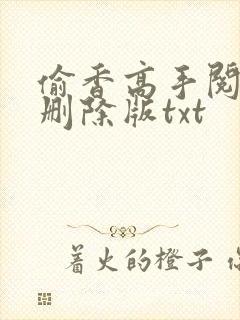 偷香高手阅
删除版txt
着火的橙子